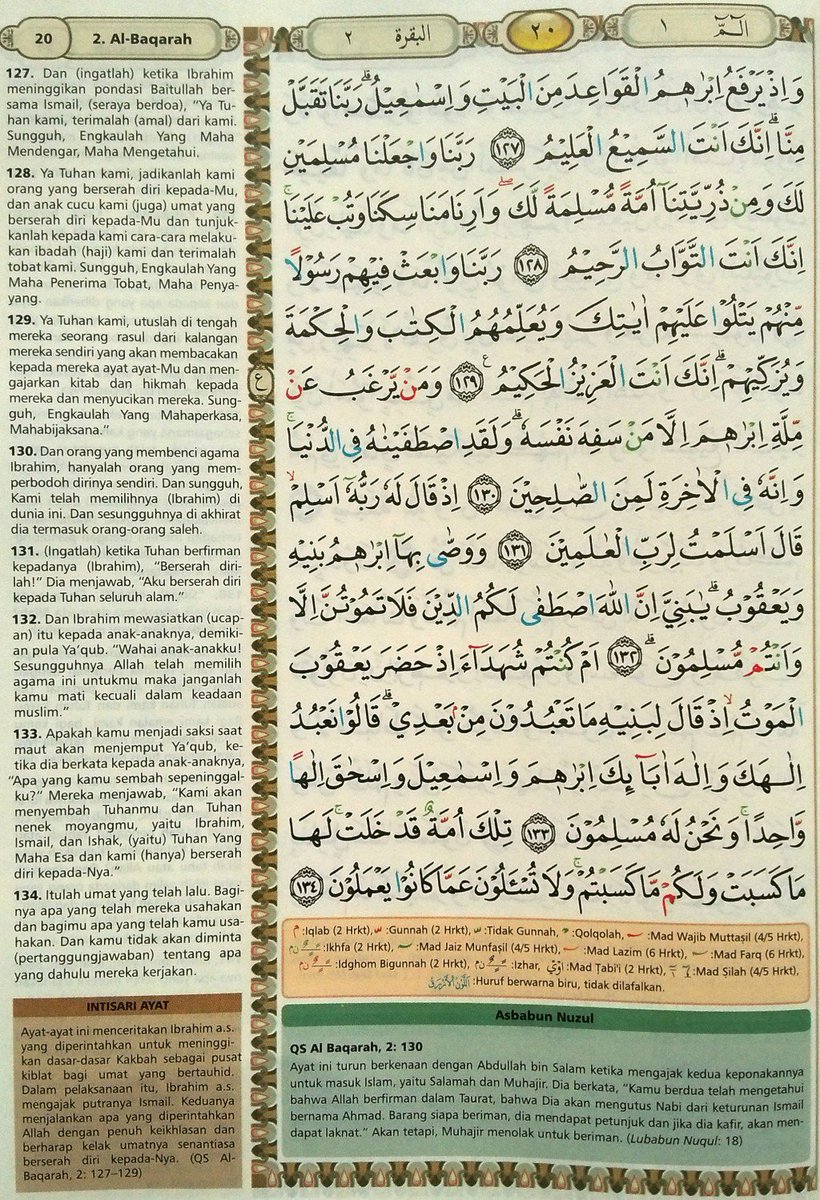 20
2. Al-Baqarah
البقرة ٢
٢٠
الۤمّۤ ١
127. Dan (ingatlah) ketika Ibrahim
meninggikan pondasi Baitullah ber-
sama Ismail, (seraya berdoa), "Ya Tu-
han kami, terimalah (amal) dari kami.
Sungguh, Engkaulah Yang Maha
Mendengar, Maha Mengetahui.
128. Ya Tuhan kami, jadikanlah kami
orang yang berserah diri kepada-Mu,
dan anak cucu kami (juga) umat yang
berserah diri kepada-Mu dan tunjuk-
kanlah kepada kami cara-cara melaku-
kan ibadah (haji) kami dan terimalah
tobat kami. Sungguh, Engkaulah Yang
Maha Penerima Tobat, Maha Penya-
yang.
129. Ya Tuhan kami, utuslah di tengah
mereka seorang rasul dari kalangan
mereka sendiri yang akan membacakan
kepada mereka ayat ayat-Mu dan men-
gajarkan kitab dan hikmah kepada
mereka dan menyucikan mereka. Sung-
guh, Engkaulah Yang Mahaperkasa,
Mahabijaksana."
130. Dan orang yang membenci agama
Ibrahim, hanyalah orang yang mem-
perbodoh dirinya sendiri. Dan sungguh,
Kami telah memilihnya (Ibrahim) di
dunia ini. Dan sesungguhnya di akhirat
dia termasuk orang-orang saleh.
131. (Ingatlah) ketika Tuhan berfirman
kepadanya (Ibrahim), "Berserah diri-
lah!" Dia menjawab, "Aku berserah diri
kepada Tuhan seluruh alam."
132. Dan Ibrahim mewasiatkan (ucap-
an) itu kepada anak-anaknya, demiki-
an pula Ya'qub. "Wahai anak-anakku!
Sesungguhnya Allah telah memilih
agama ini untukmu maka janganlah
kamu mati kecuali dalam keadaan
muslim."
133. Apakah kamu menjadi saksi saat
maut akan menjemput Ya'qub, ke-
tika dia berkata kepada anak-anaknya,
"Apa yang kamu sembah sepeninggal-
ku?" Mereka menjawab, "Kami akan
menyembah Tuhanmu dan Tuhan
nenek moyangmu, yaitu Ibrahim,
Ismail, dan Ishak, (yaitu) Tuhan Yang
Maha Esa dan kami (hanya) berserah
diri kepada-Nya."
134. Itulah umat yang telah lalu. Bagi-
nya apa yang telah mereka usahakan
dan bagimu apa yang telah kamu usa-
hakan. Dan kamu tidak akan diminta
(pertanggungjawaban) tentang apa
yang dahulu mereka kerjakan.
INTISARI AYAT
Ayat-ayat ini menceritakan Ibrahim a.s.
yang diperintahkan untuk meninggi-
kan dasar-dasar Kakbah sebagai pusat
kiblat bagi umat yang bertauhid.
Dalam pelaksanaan itu, Ibrahim a.s.
mengajak putranya Ismail. Keduanya
menjalankan apa yang diperintahkan
Allah dengan penuh keikhlasan dan
berharap kelak umatnya senantiasa
berserah diri kepada-Nya. (QS Al-
Baqarah, 2: 127–129)
وَاِذْ يَرْفَعُ اِبْرٰهٖمُ الْقَوَاعِدَ مِنَ الْبَيْتِ وَاِسْمٰعِيْلُۗ رَبَّنَا تَقَبَّلْ
مِنَّاۗ اِنَّكَ اَنْتَ السَّمِيْعُ الْعَلِيْمُ ١٢٧ رَبَّنَا وَاجْعَلْنَا مُسْلِمَيْنِ
لَكَ وَمِنْ ذُرِّيَّتِنَآ اُمَّةً مُّسْلِمَةً لَّكَۖ وَاَرِنَا مَنَاسِكَنَا وَتُبْ عَلَيْنَاۚ
اِنَّكَ اَنْتَ التَّوَّابُ الرَّحِيْمُ ١٢٨ رَبَّنَا وَابْعَثْ فِيْهِمْ رَسُوْلًا
مِّنْهُمْ يَتْلُوْا عَلَيْهِمْ اٰيٰتِكَ وَيُعَلِّمُهُمُ الْكِتٰبَ وَالْحِكْمَةَ
وَيُزَكِّيْهِمْۗ اِنَّكَ اَنْتَ الْعَزِيْزُ الْحَكِيْمُ ࣖ ١٢٩ وَمَنْ يَّرْغَبُ عَنْ
ع
مِّلَّةِ اِبْرٰهٖمَ اِلَّا مَنْ سَفِهَ نَفْسَهٗۗ وَلَقَدِ اصْطَفَيْنٰهُ فِى الدُّنْيَاۚ
وَاِنَّهٗ فِى الْاٰخِرَةِ لَمِنَ الصّٰلِحِيْنَ ١٣٠ اِذْ قَالَ لَهٗ رَبُّهٗٓ اَسْلِمْۙ
قَالَ اَسْلَمْتُ لِرَبِّ الْعٰلَمِيْنَ ١٣١ وَوَصّٰى بِهَآ اِبْرٰهٖمُ بَنِيْهِ
وَيَعْقُوْبُۗ يٰبَنِيَّ اِنَّ اللّٰهَ اصْطَفٰى لَكُمُ الدِّيْنَ فَلَا تَمُوْتُنَّ اِلَّا
وَاَنْتُمْ مُّسْلِمُوْنَۗ ١٣٢ اَمْ كُنْتُمْ شُهَدَاۤءَ اِذْ حَضَرَ يَعْقُوْبَ
الْمَوْتُۙ اِذْ قَالَ لِبَنِيْهِ مَا تَعْبُدُوْنَ مِنْۢ بَعْدِيْۗ قَالُوْا نَعْبُدُ
اِلٰهَكَ وَاِلٰهَ اٰبَاۤىِٕكَ اِبْرٰهٖمَ وَاِسْمٰعِيْلَ وَاِسْحٰقَ اِلٰهًا
وَّاحِدًاۚ وَنَحْنُ لَهٗ مُسْلِمُوْنَ ١٣٣ تِلْكَ اُمَّةٌ قَدْ خَلَتْۚ لَهَا
مَا كَسَبَتْ وَلَكُمْ مَّا كَسَبْتُمْۚ وَلَا تُسْـَٔلُوْنَ عَمَّا كَانُوْا يَعْمَلُوْنَ ١٣٤
:Iqlab (2 Hrkt), :Gunnah (2 Hrkt), :Tidak Gunnah, :Qolqolah, :Mad Wajib Muttaṣil (4/5 Hrkt),
:Ikhfa (2 Hrkt), :Mad Jaiz Munfaṣil (4/5 Hrkt), :Mad Lazim (6 Hrkt), :Mad Farq (6 Hrkt),
:Idghom Bigunnah (2 Hrkt), :Izhar, :Mad Ṭabi'i (2 Hrkt), :Mad Ṣilah (4/5 Hrkt),
:Huruf berwarna biru, tidak dilafalkan.
Asbabun Nuzul
QS Al Baqarah, 2: 130
Ayat ini turun berkenaan dengan Abdullah bin Salam ketika mengajak kedua keponakannya
untuk masuk Islam, yaitu Salamah dan Muhajir. Dia berkata, "Kamu berdua telah mengetahui
bahwa Allah berfirman dalam Taurat, bahwa Dia akan mengutus Nabi dari keturunan Ismail
bernama Ahmad. Barang siapa beriman, dia mendapat petunjuk dan jika dia kafir, akan men-
dapat laknat." Akan tetapi, Muhajir menolak untuk beriman. (Lubabun Nuqul: 18)